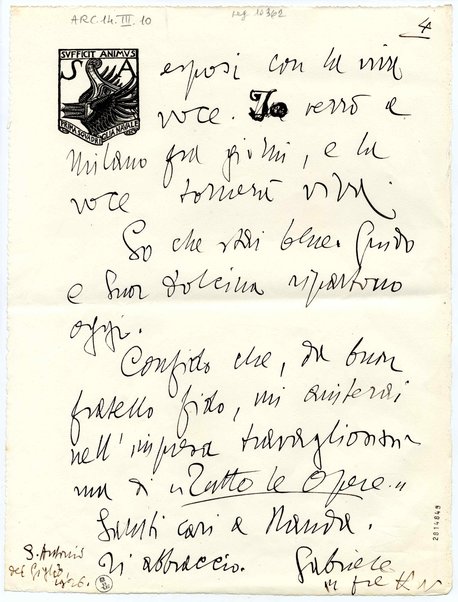 ARC.14.III.10
reg 10362
4
SUFFICIT ANIMUS
S A
PRIMA SQUADRIGLIA NAVALE
esposi con la viva
voce. Io verrò a
Milano fra giorni, e la
voce tornerà viva.
So che stai bene. Guido
e Suor Dolcina ripartono
oggi.
Confido che, da buon
fratello fido, mi aiuterai
nell'impresa travagliosissi-
ma di "Tutte le Opere."
Saluti cari a Nanda.
Ti abbraccio. Gabriele
S. Antonio
del Giglio
1926.
2814849